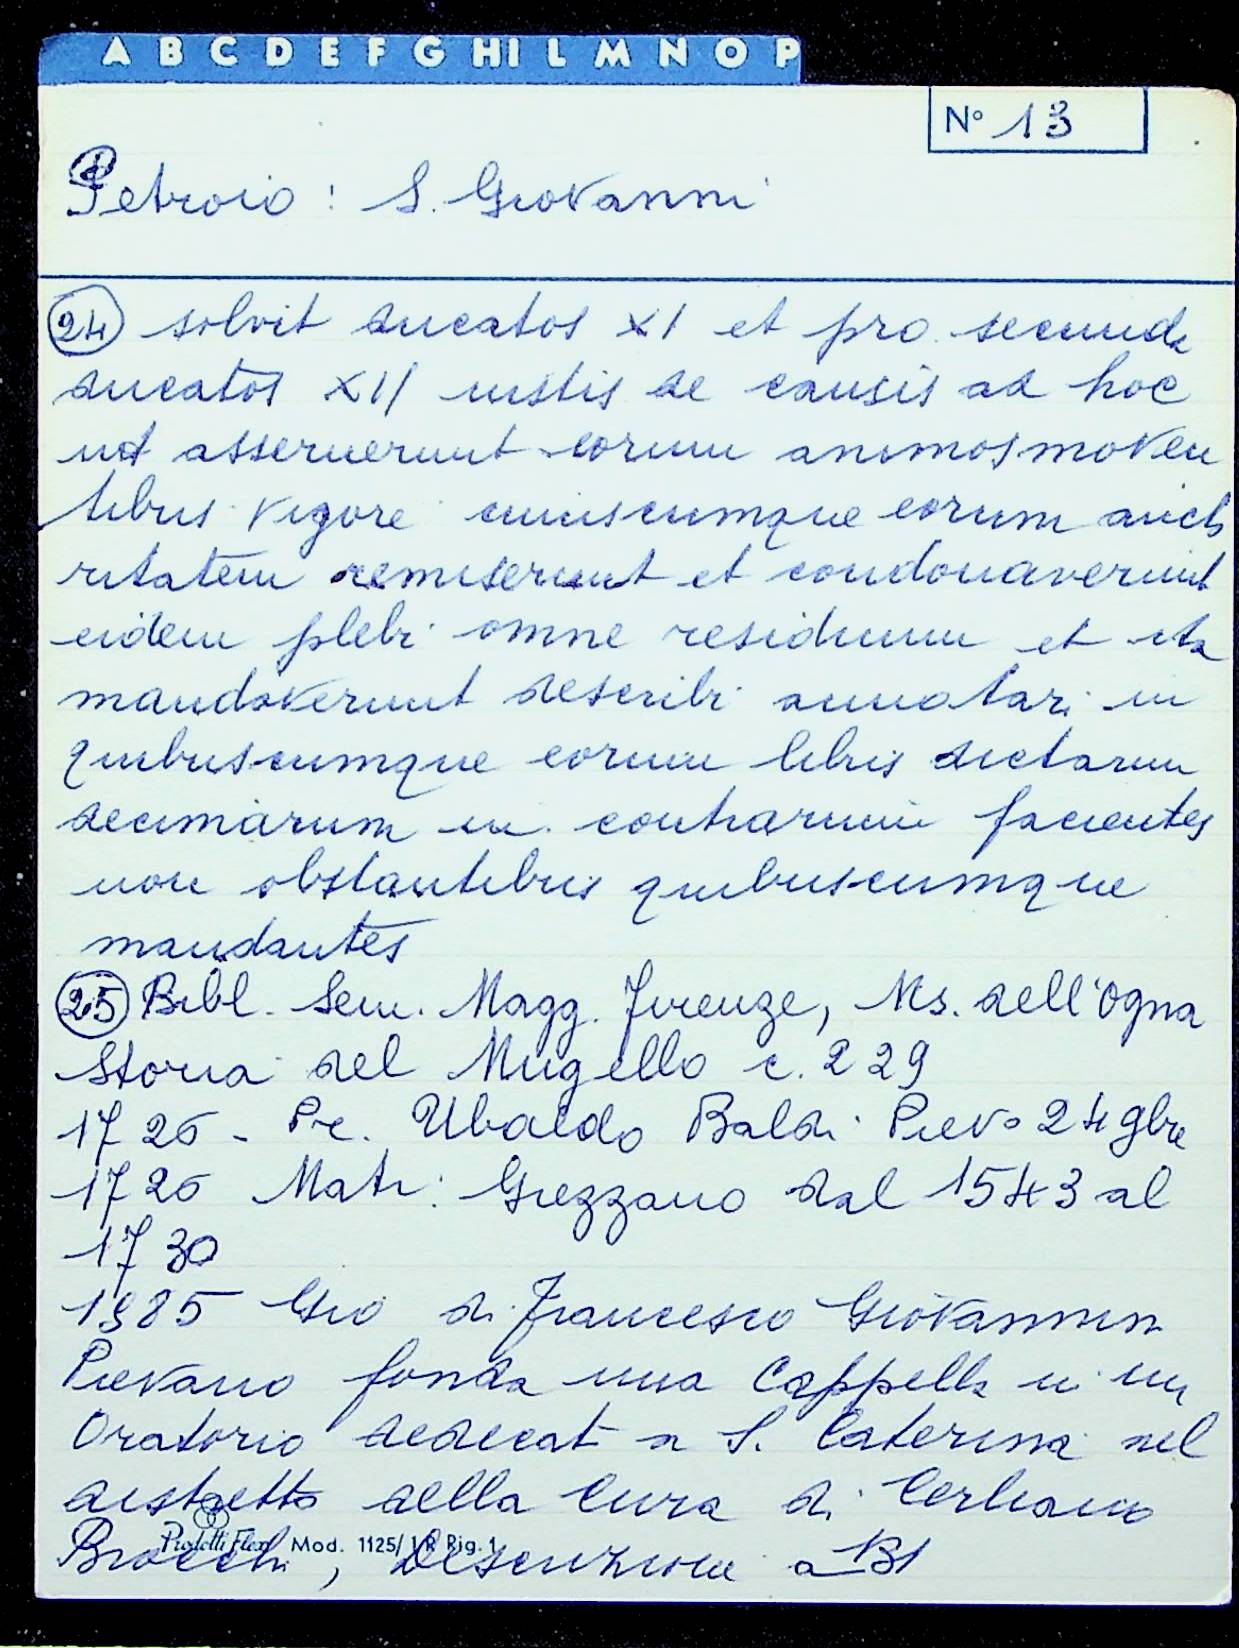 A B C D E F G HI L M N O P
N° 13
Petroio : S. Giovanni
24 solvit ducatos XI et pro secunda
ducatos XII iustis de causis ad hoc
ut asseruerunt eorum animos moven
tibus vigore cuiuscumque eorum aucto
ritatem remiserunt et condonaverunt
eidem plebi omne residuum et ita
mandaverunt describi annotari in
quibuscumque eorum libris dictarum
decimarum in contrarium facientes
non obstantibus quibuscumque
mandantes
25 Bibl. Sem. Magg. Firenze, Ms. dell'Ogna
Storia del Mugello c. 229
1726 - Pe. Ubaldo Baldi Piev° 24 9bre
1726 Matr: Grezzano dal 1543 al
1730
1385 Gio di Francesco Giovannini
Pievano fonda una Cappella in un
Oratorio dedicat a S. Caterina nel
distretto della Cura di Cerliano
Brocchi, Descrizione a 131
Pialetti Flex Mod. 1125/1R Rig. 1